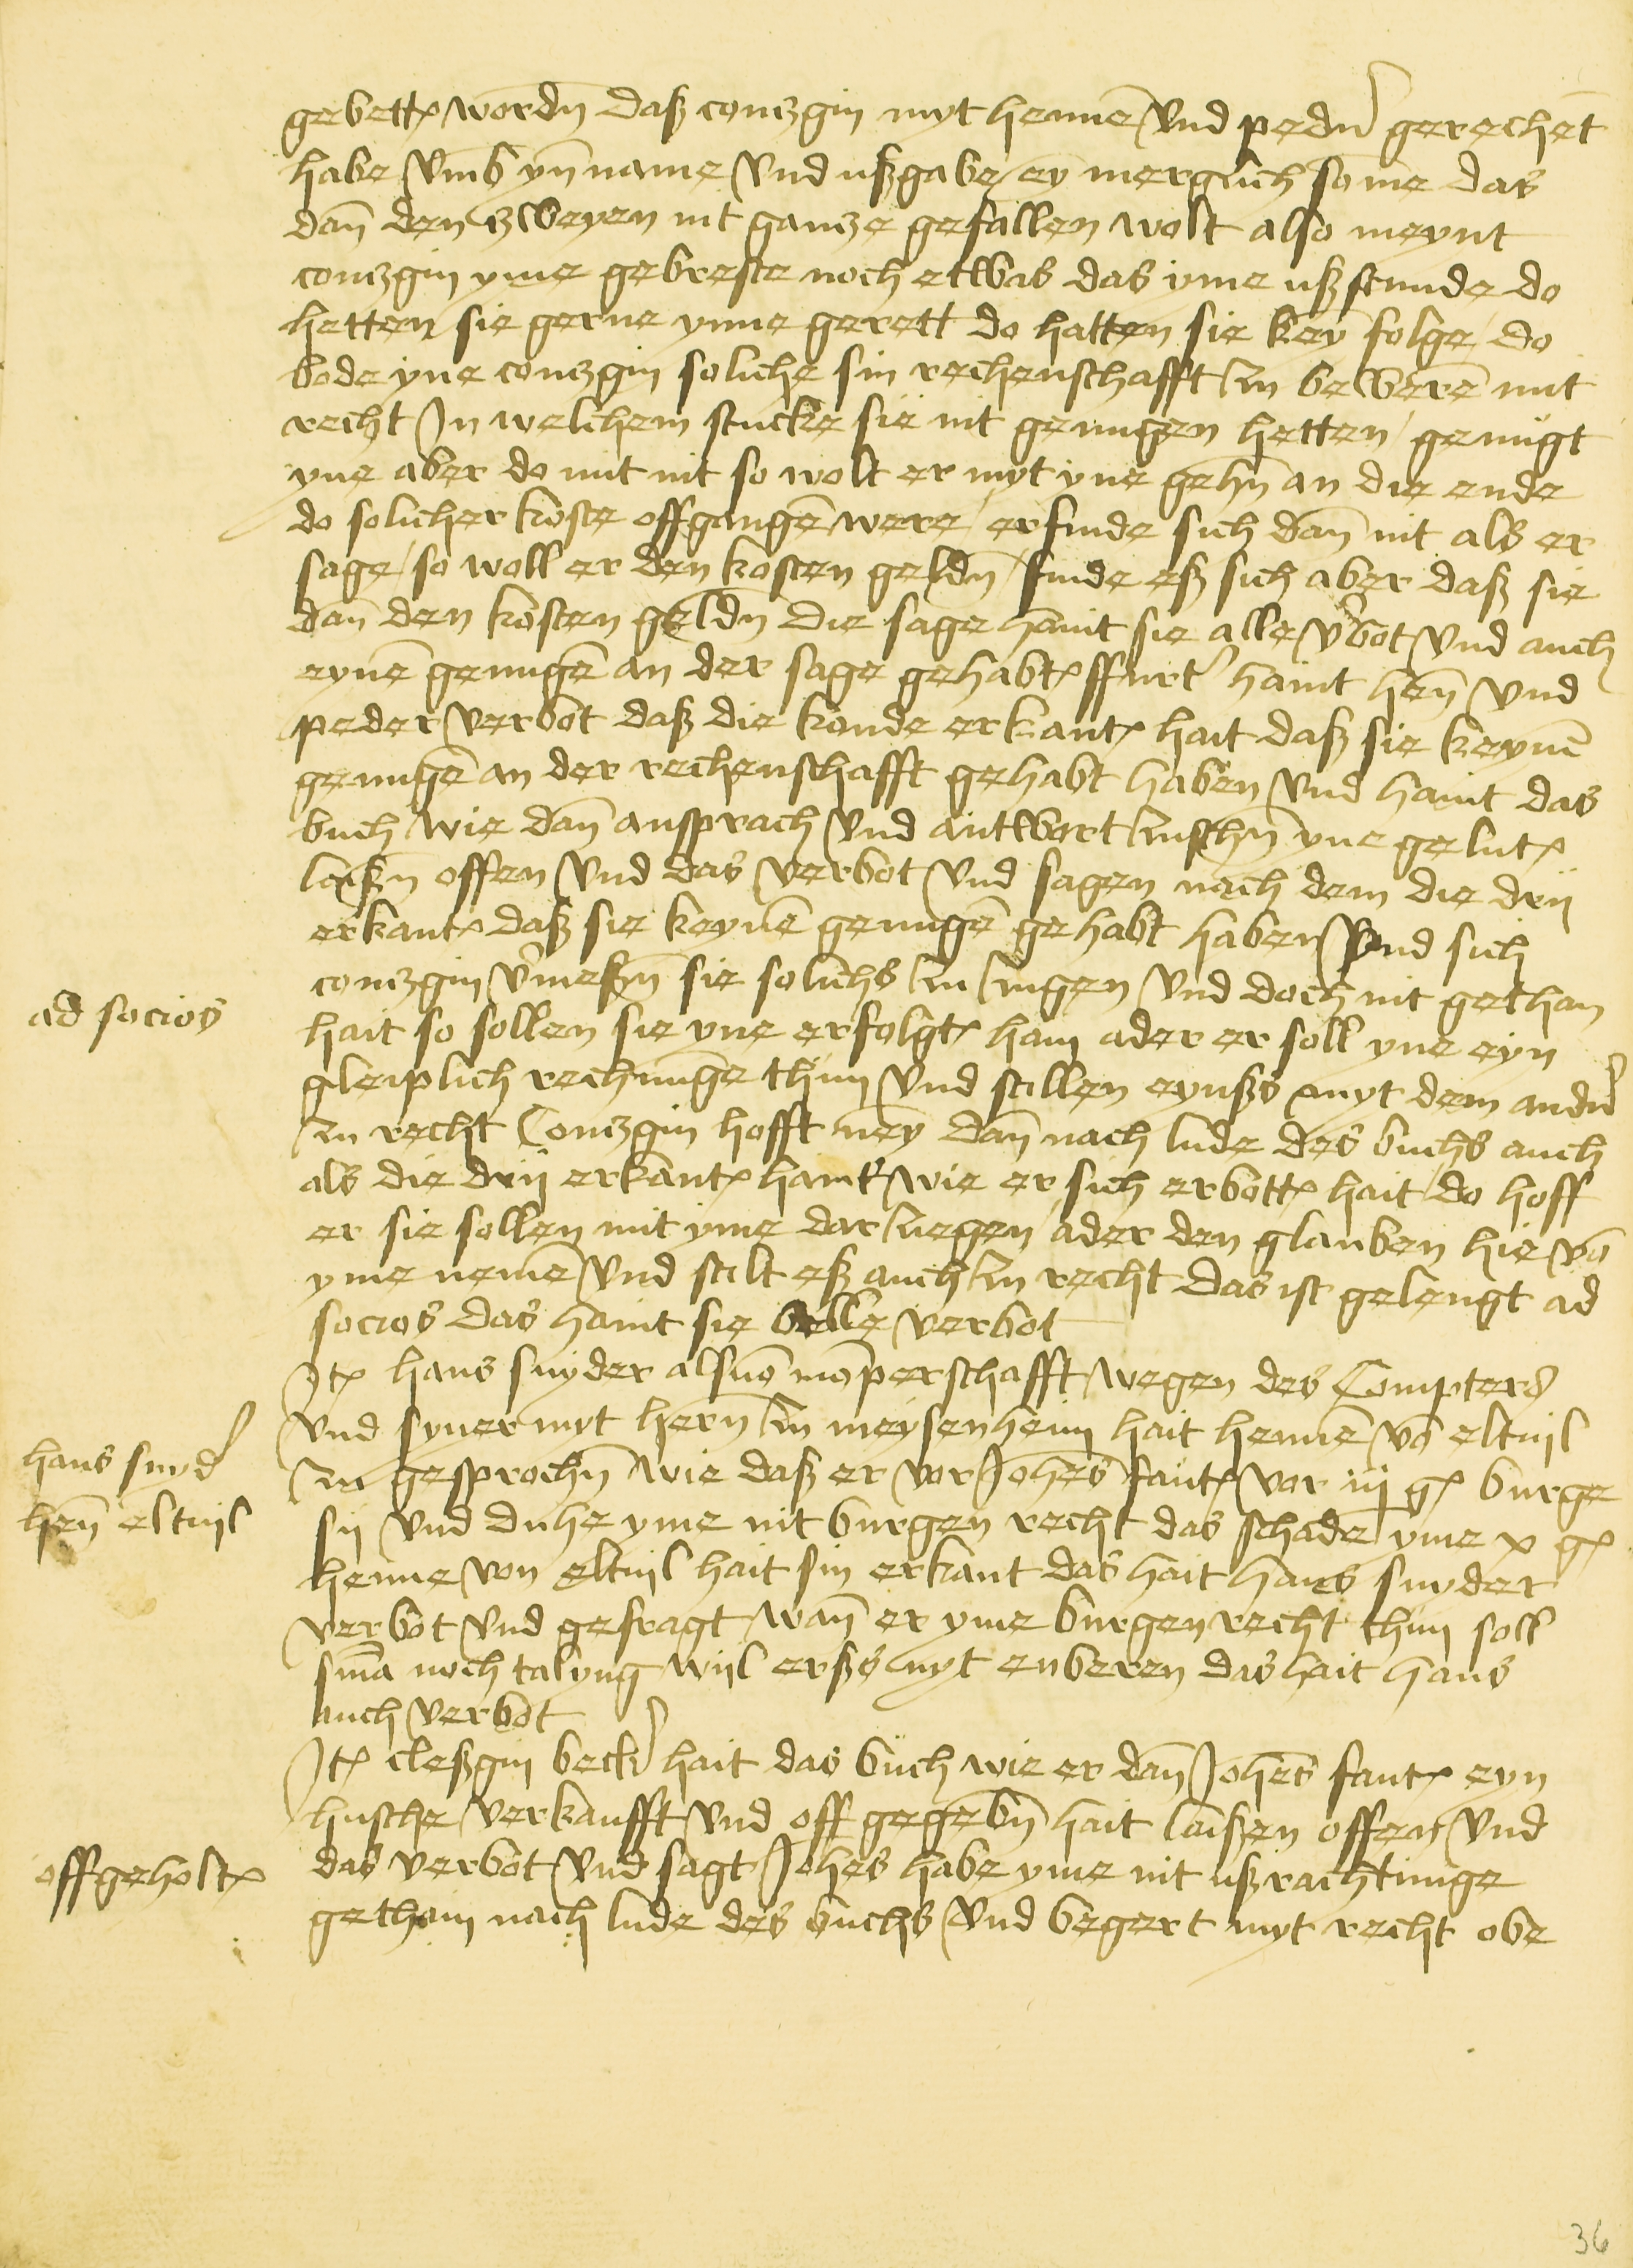 gebett wordn̄ daß contzgin myt hennē vnd pedeɾ gerechēt
habe vmb ynname vnd ußgabe ey merglich somē das
dan̄ den zweyen nit gantze gefallen wolt also meynt
contzgin yme gebreste noch etwas das yme ußstunde do
hetten sie gerne ynne gerett do hatten sie key folge do
bode yne contzgin soliche sin rechenschafft zu bewerē mit
recht In welchem stucke sie nit genugen hetten / genugt
yne aber do mit nit so wolt er myt yne gehn̄ an die ende
do solicher koste offgangē were / erfinde sich dan̄ nit als er
sage / so woll er den kosten geldn̄ / finde eß sich aber daß sie
dan̄ den kosten geldn̄ Die sage haint sie alle v'bot vnd auch
eynē genugē an der sage gehabt ffurt' haint hen̄ vnd
peder verbot daß die konde erkant hait daß sie keynē
genugē an der rechenschafft gehabt haben vnd haint das
buch wie dan̄ ansprach vnd antwort zuschn̄ yne gelut
laißn̄ offen vnd das verbot vnd sagen nach dem die drij
erkant daß sie keynē genugē gehabt haben vnd sich
contzgin v'meßn̄ sie solichs zu zugen vnd doch nit gethan
ad socios
hait so sollen sie yne erfolgt han ader er soll yne eyn
gleiplich rechnunge thun vnd stillen eynßs myt dem andn'
zu recht Contzgin hofft ney dan̄ nach lude des buchs auch
als die drij erkant haint wie er sich erbott hait / do hoff
er sie sollen mit yme dar ziegen / ader den glauben hie vō
yme nemē vnd stilt eß auch zu recht das ist gelengt ad
socios das haint sie alle verbot
Itē hans snyder als vō mōperschafft wegen des Compters
vnd syner myt hern̄ zu meysenheim hait hennē vō eltuil
hans snyd'
zu gesprochn̄ wie daß er vor Joh̄es faut vor iij ḡ burge
hen̄ eltuil
sij vnd duhe yme nit burgen recht das schade yme x ḡ
henne von eltuil hait sin erkant das hait hans snyder
verbot vnd gefragt wan̄ er yme burgen recht thun soll
sn̄ia noch talyng wijl erßs nyt enberen das hait hans
auch verbot
Itē cleßgin beck' hait das buch wie er dan̄ Joh̄es faut eyn
husche verkaufft vnd off gegebn̄ hait laißen offen vnd
offgeholt
das verbot vnd sagt Joh̄es habe yme nit ußrachtunge
gethain nach lude des buchs vnd begert myt recht obe
36